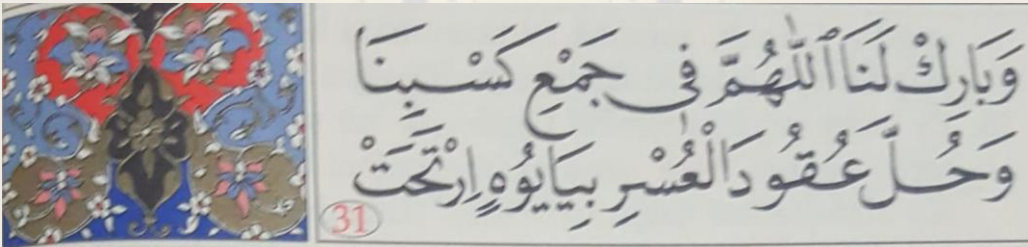 وَبَارِكْ لَنَا اللّٰهُمَّ فِى جَمْعِ كَسْبِنَا
وَحُلَّ عُقُودَ الْعُسْرِ بِيَايُوُهٍ اِرْتَحَتْ
31